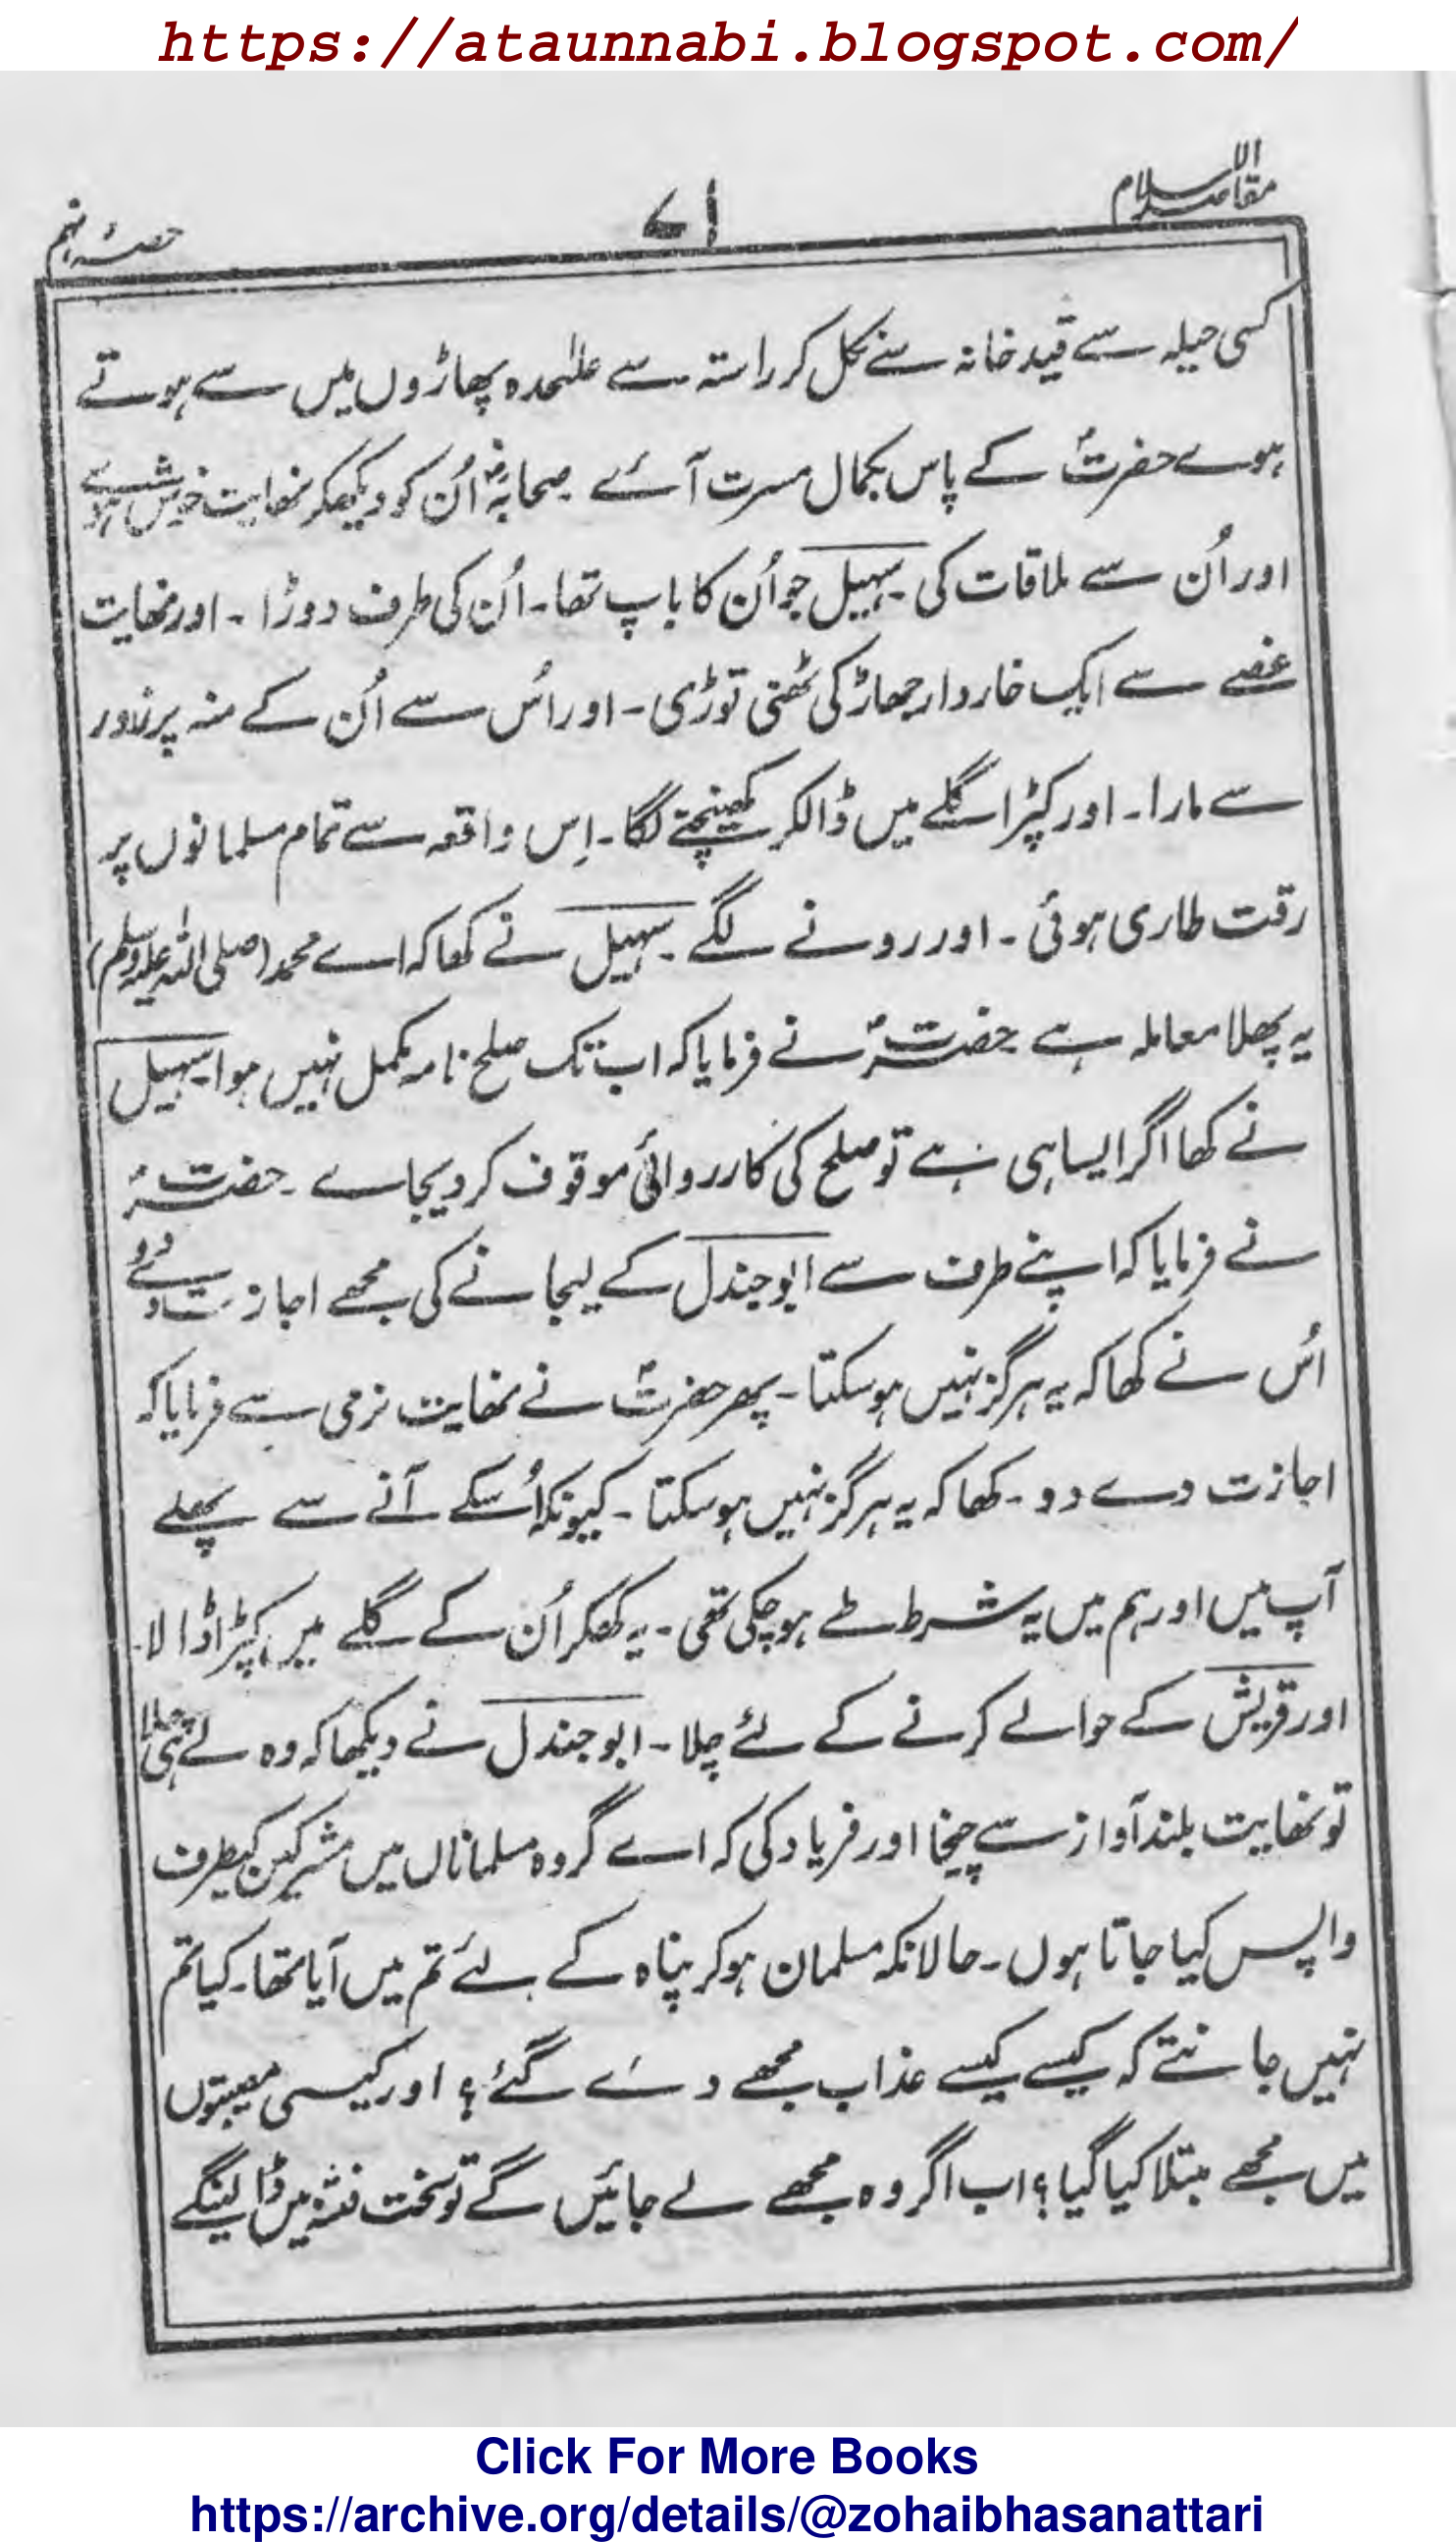 https://ataunnabi.blogspot.com/
مقاصد الاسلام
۷۱
حصہ نہم
کسی حیلہ سے قید خانہ سے نکل کر راستہ سے علٰحدہ پھاڑوں میں سے ہوتے
ہوے حضرتؐ کے پاس بکمال مسرت آئے ۔ صحابہؓ اُن کو دیکھکر نھایت خوش ہوے
اور اُن سے ملاقات کی ۔ سہیل جو اُن کا باپ تھا ۔ اُن کی طرف دوڑا ۔ اور نھایت
غصے سے ایک خاردار جھاڑ کی ٹھنی توڑی ۔ اور اُس سے اُن کے منہ پر زور
سے مارا ۔ اور کپڑا گلے میں ڈالکر کھینچنے لگا ۔ اِس واقعہ سے تمام مسلمانوں پر
رقت طاری ہوئی ۔ اور رونے لگے ۔ سہیل نے کھا کہ اے محمد (صلی اللہ علیہ وسلم)
یہ پھلا معاملہ ہے ۔ حضرتؐ نے فرمایا کہ اب تک صلح نامہ مکمل نہیں ہوا ۔ سہیل
نے کھا اگر ایسا ہی ہے تو صلح کی کارروائی موقوف کر دیجاے ۔ حضرتؐ
نے فرمایا کہ اپنے طرف سے ابوجندل کے لیجانے کی مجھے اجازت دے دو
اُس نے کھا کہ یہ ہرگز نہیں ہو سکتا ۔ پھر حضرتؐ نے نھایت نرمی سے فرمایا کہ
اجازت دے دو ۔ کھا کہ یہ ہرگز نہیں ہو سکتا ۔ کیونکہ اُسکے آنے سے پھلے
آپ میں اور ہم میں یہ شرط طے ہو چکی تھی ۔ یہ کھکر اُن کے گلے میں کپڑا ڈالا ۔
اور قریش کے حوالے کرنے کے لئے چلا ۔ ابو جندل نے دیکھا کہ وہ لے ہی چلا
تو نھایت بلند آواز سے چیخا اور فریاد کی کہ اے گروہ مسلماناں میں مشرکین کیطرف
واپس کیا جاتا ہوں ۔ حالانکہ مسلمان ہوکر پناہ کے لئے تم میں آیا تھا ۔ کیا تم
نہیں جانتے کہ کیسے کیسے عذاب مجھے دئے گئے ؟ اور کیسی مصیبتوں
میں مجھے مبتلا کیا گیا ؟ اب اگر وہ مجھے لے جائیں گے تو سخت فتنہ میں ڈالینگے
Click For More Books
https://archive.org/details/@zohaibhasanattari